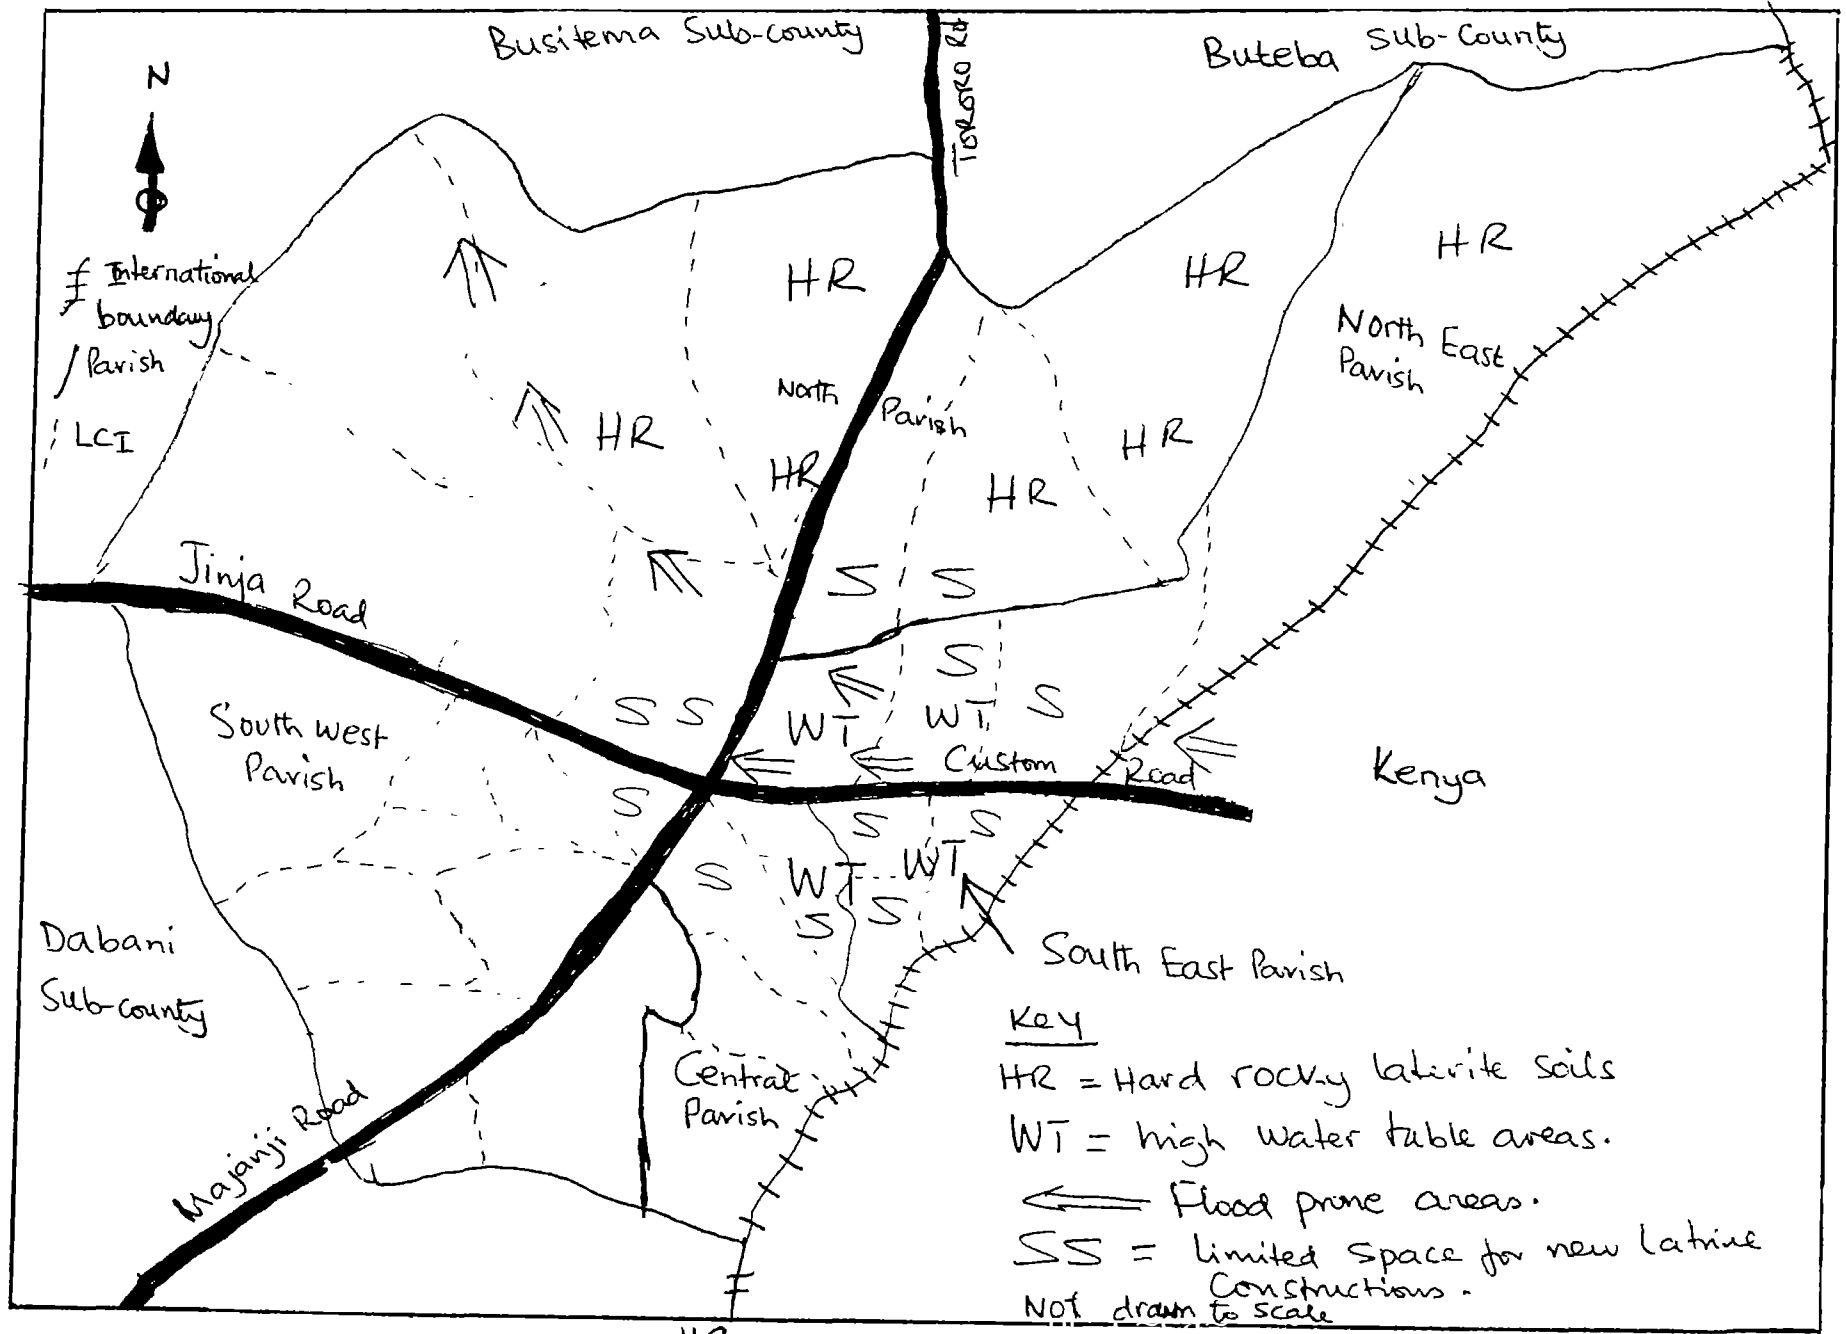 Busitema Sub-county
Buteba Sub-County
TORORO Rd
N
International
boundary
Parish
LCI
HR
HR
HR
North East
Parish
North Parish
HR
HR
HR
HR
S S
Jinja Road
S
S
S S
WT WT
South West
Parish
Custom Road
Kenya
S
S S
S
WT WT
S S
Dabani
Sub-county
South East Parish
Central
Parish
Majanji Road
Key
HR = Hard rocky laterite soils
WT = high water table areas.
Flood prone areas.
SS = limited space for new latrine
Constructions.
Not drawn to scale